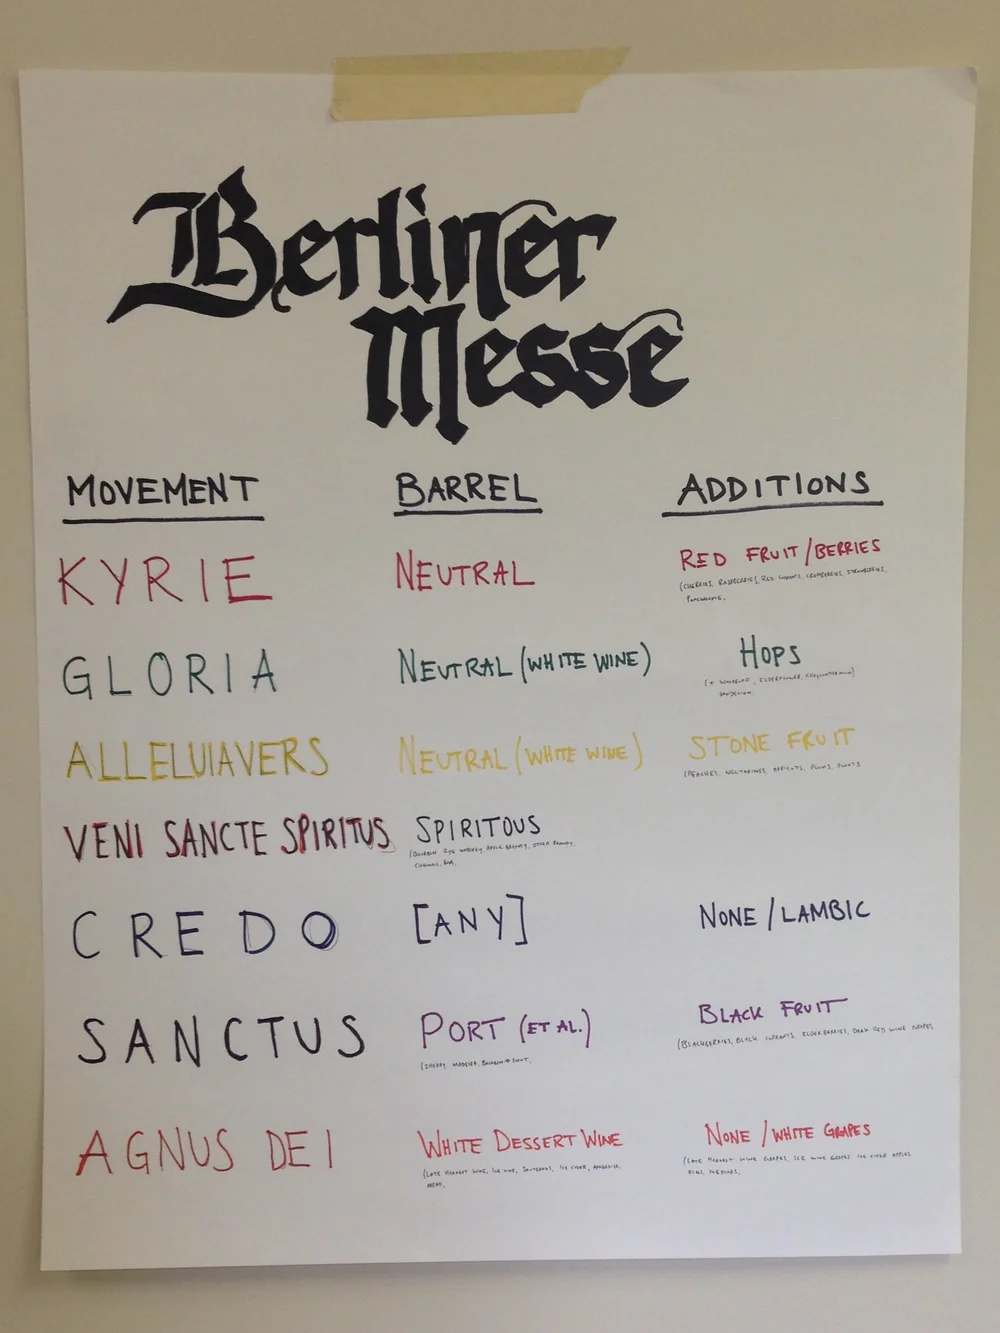 Berliner
Messe
MOVEMENT BARREL ADDITIONS
KYRIE NEUTRAL RED FRUIT/BERRIES
(CHERRIES, RASPBERRIES, RED CURRANTS, CRANBERRIES, STRAWBERRIES,
GLORIA NEUTRAL (WHITE WINE) HOPS
(+ WOODRUFF, ELDERFLOWER, CHRYSANTHEMUM)
DANDELION
ALLELUIAVERS NEUTRAL (WHITE WINE) STONE FRUIT
(PEACHES, NECTARINES, APRICOTS, PLUMS,
VENI SANCTE SPIRITUS SPIRITOUS
(BOURBON RYE WHISKEY APPLE BRANDY, OTHER BRANDY,
COGNAC, RUM,
CREDO [ANY] NONE/LAMBIC
SANCTUS PORT (ET AL.) BLACK FRUIT
(SHERRY, MADEIRA, (BLACKBERRIES, BLACK CURRANTS, ELDERBERRIES, DARK RED WINE GRAPES,
AGNUS DEI WHITE DESSERT WINE NONE/WHITE GRAPES
(LATE HARVEST WINE, ICE WINE, SAUTERNES, ICE CIDER, (LATE HARVEST WINE GRAPES, ICE WINE GRAPES ICE CIDER APPLES
FIGS, MEDLARS,